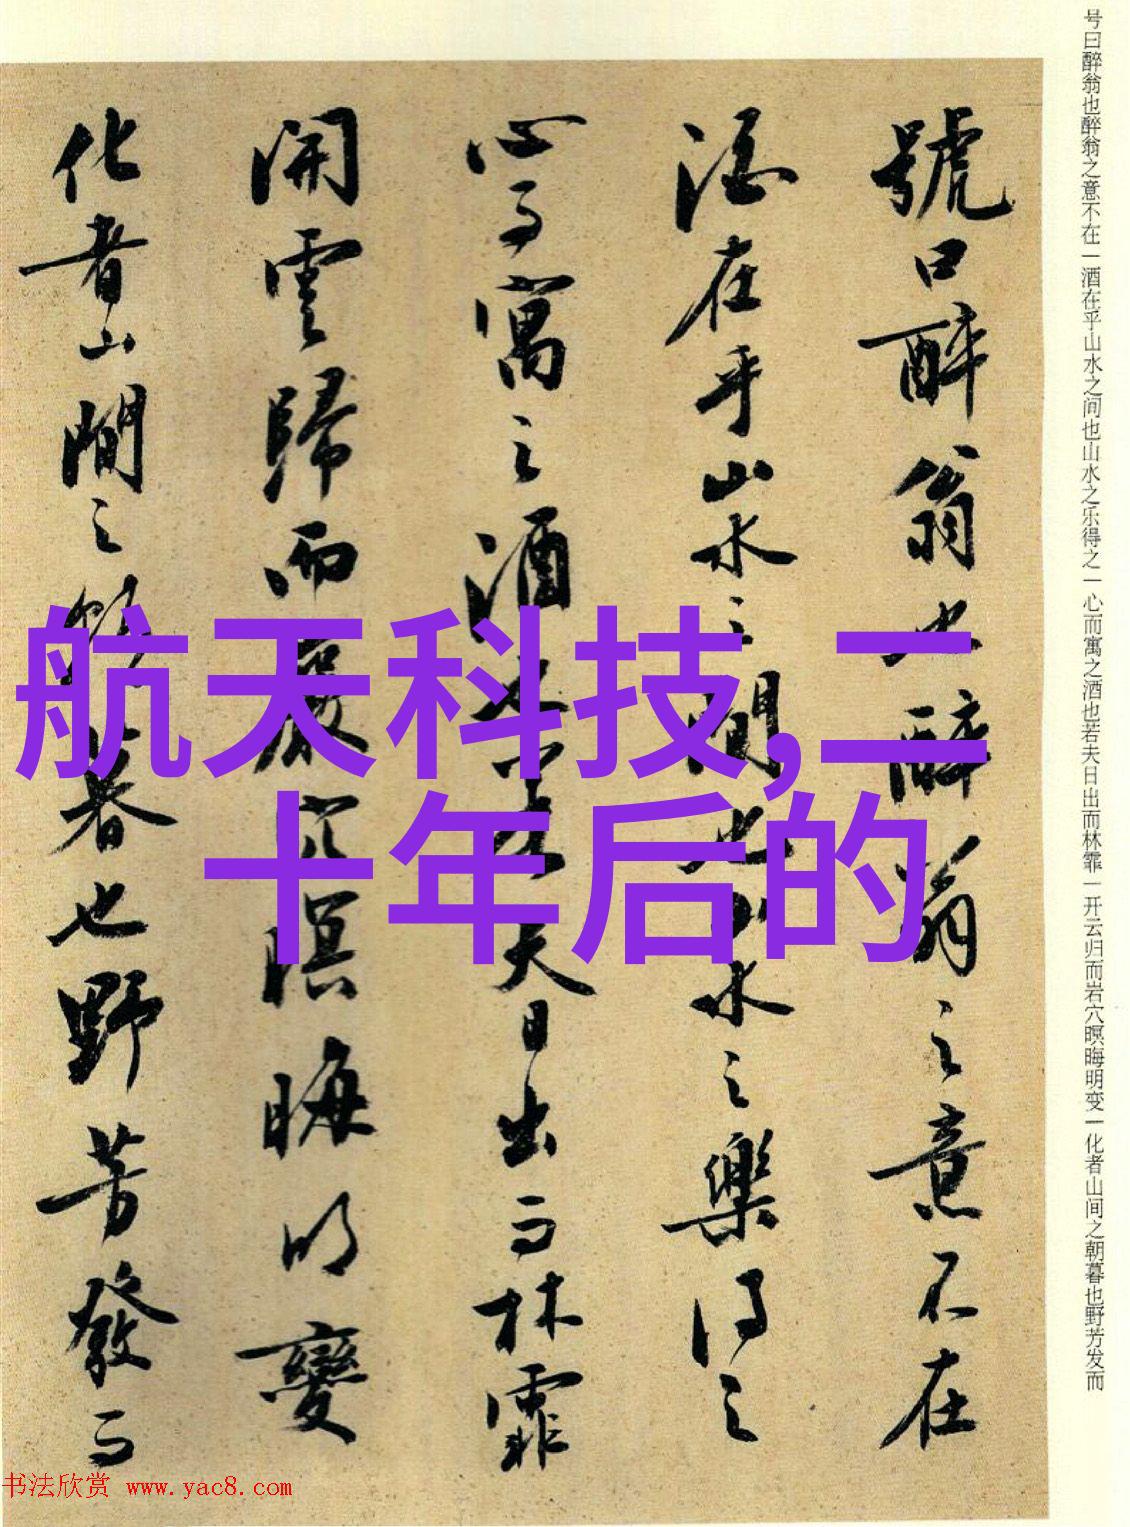 号曰醉翁也醉翁之意不在一酒在乎山水之间也山水之乐得之一心而寓之酒也若夫日出而林霏一开云归而岩穴暝晦明变一化者山间之朝暮也野芳发而
號曰醉翁也醉翁之意不在
酒在乎山水之間也山水之樂得之
心而寓之酒也若夫日出而林霏
開雲歸而巖穴暝晦明變
化者山間之朝暮也野芳發而
航天科技,二
十年后的
书法欣赏 www.yac8.com